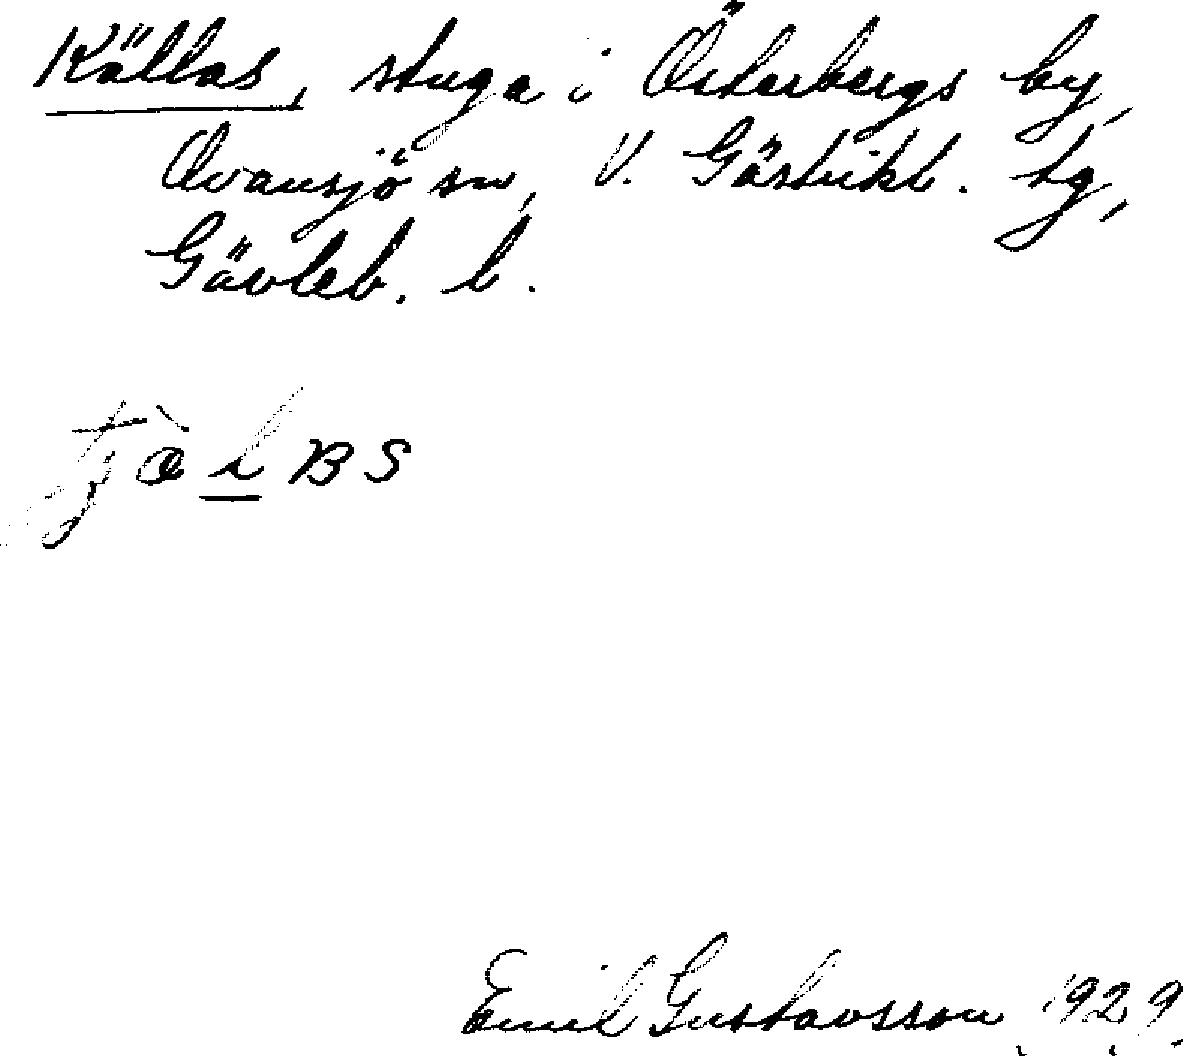 Källas, stuga i Österbergs by,
Ovansjö sn, V. Gästrikl. tg,
Gävleb. l.
Emil Gustavsson 1929.